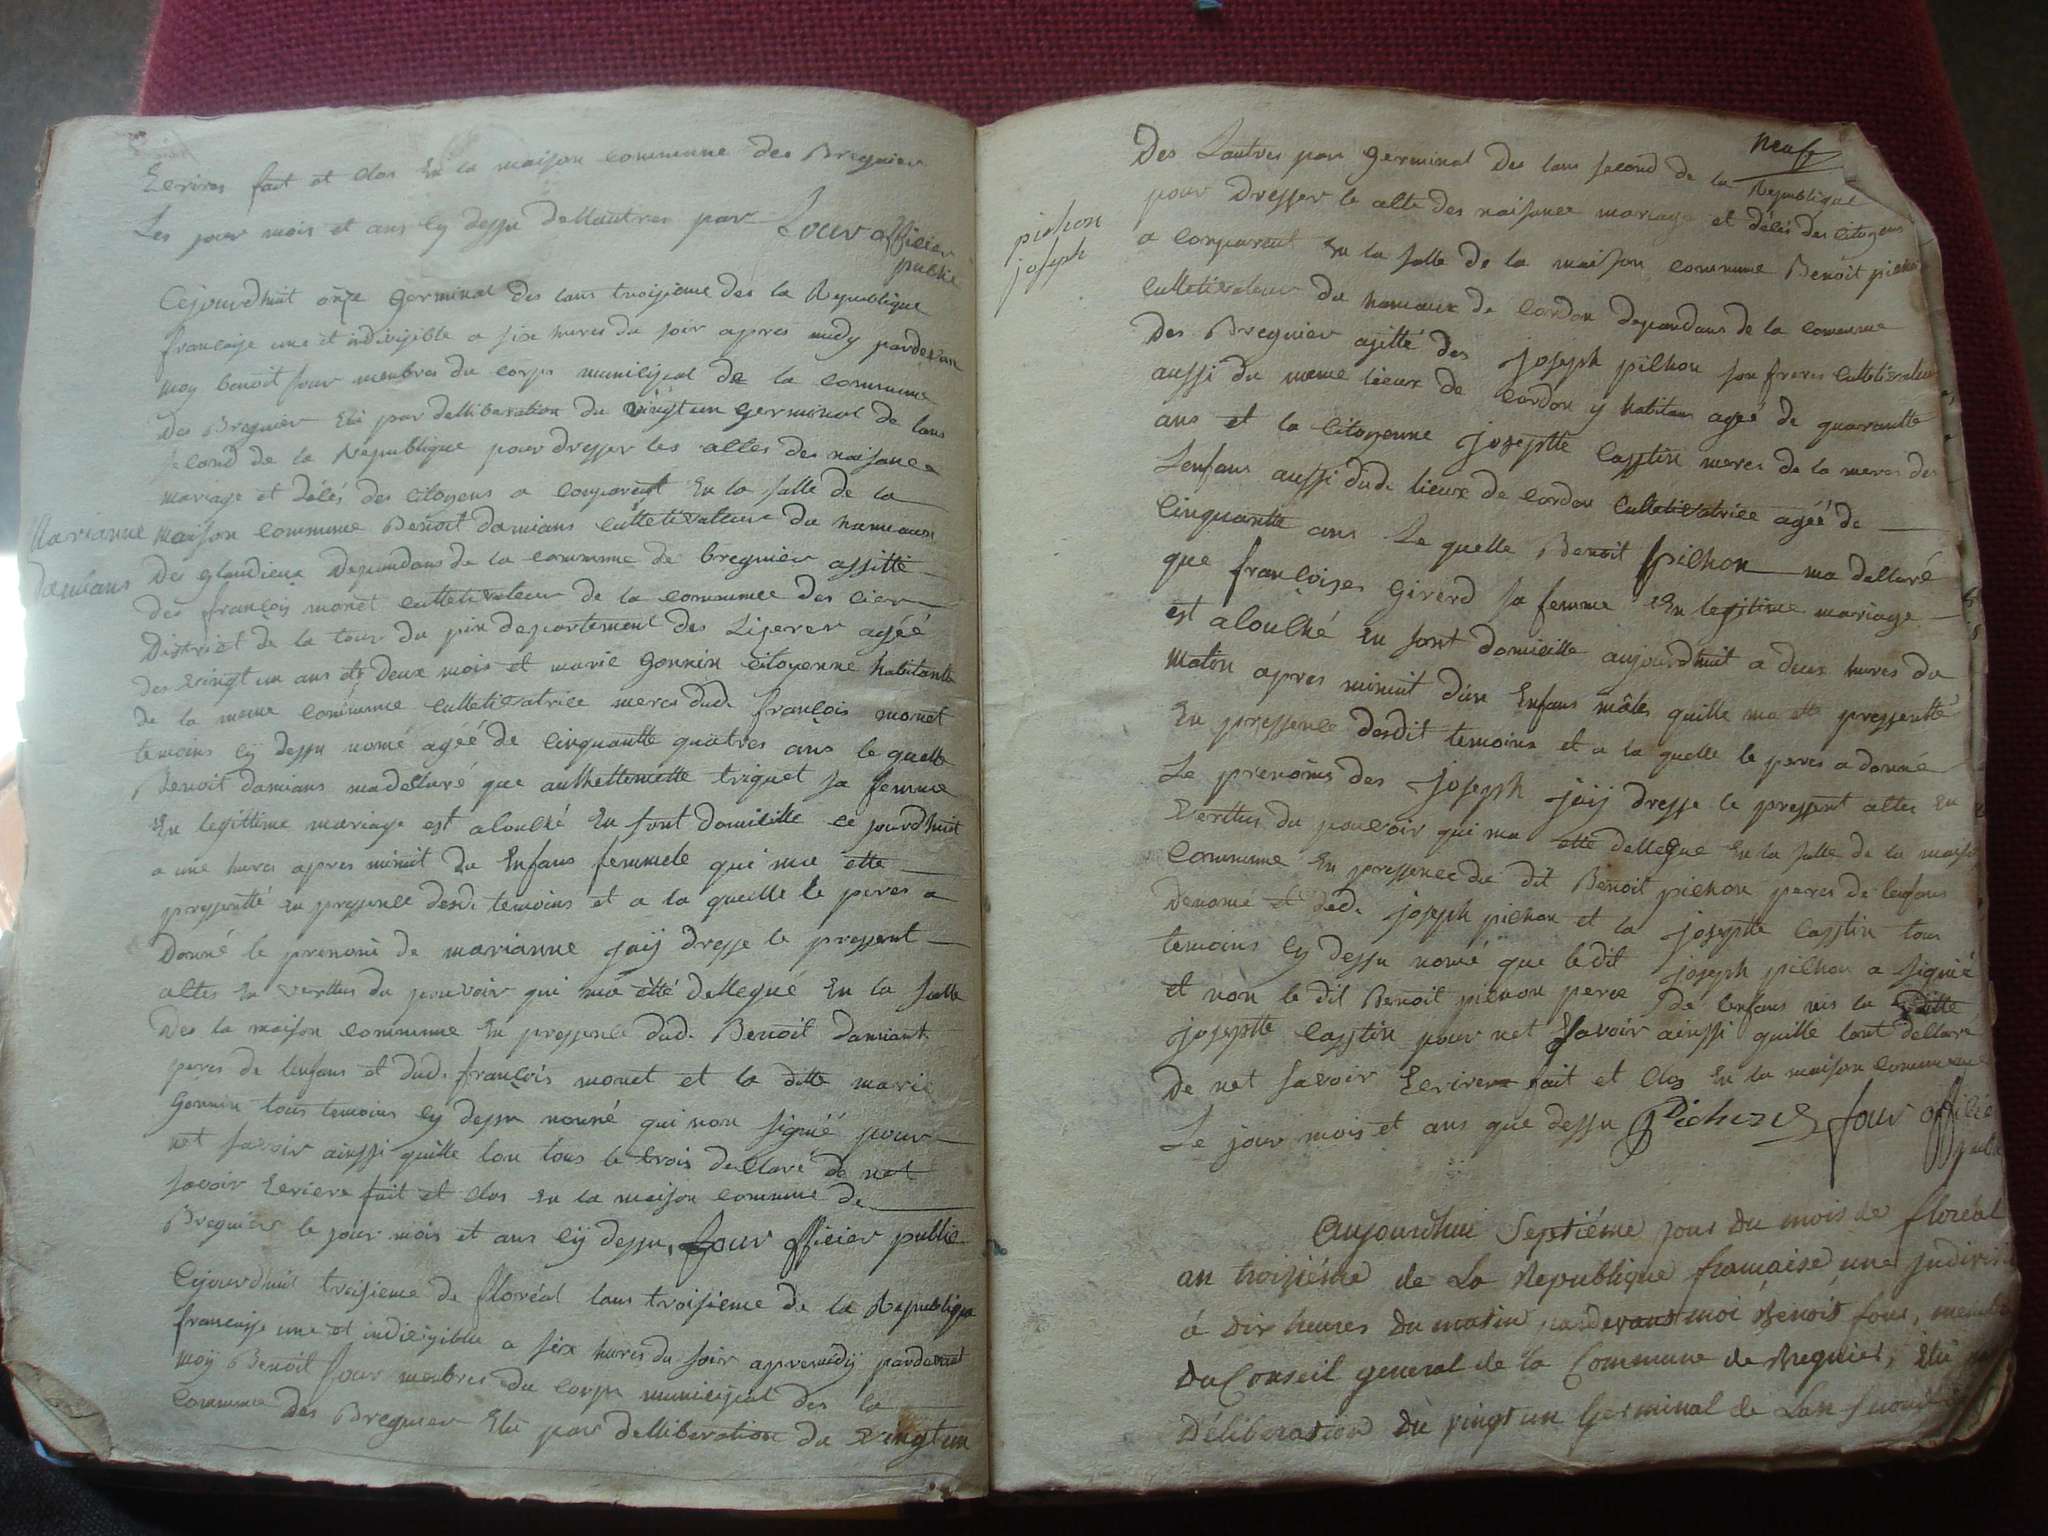 Ecrires fait et clos En la maison commune des Bregnier
Les jour mois et ans cy dessu dellautres par Four officier
public
Cejourdhuit onze germinal des lans troisieme des la Republique
francaise une et indivisible a six hures du soir apres midy pardevan
moy benoit four menbres du corps municipal de la commune
des Bregnier Elu par delliberation du vingt un germinal de lans
second de la Republique pour dresser les altes des naisance
mariage et délés des citoyens a comparent En la salle de la
Marianne
damians
maison commune Benoit damians culletivateur du hameaux
des glandieux dependans de la commune de bregnier assitté
des françois monet culletivateur de la commune des cier
District de la tour du pin departement des Liserer agéé
des vingt un ans et deux mois et marie gonnin citoyenne habitante
de la meme commune culletivatrice meres dud. françois monet
temoins cy dessu nomé agéé de cinquantte quatres ans le quelle
Benoit damians ma dellaré que anthettemette triquet sa femme
En legittime mariage est aloulhé En sont domicille ce jourdhuit
a une hures apres minuit du Enfans femmele qui ma ette
pressentté En pressence desd. temoins et a la quelle le peres a
donné le prenome de marianne jaij dresse le pressent
altes En verttus du pouvoir qui ma étté dellegué En la salle
des la maison commune En pressence dud. Benoit damians
peres de lenfans et dud. françois monet et la ditte marie
gonnin tous temoins cy dessu nommé qui non signié pour
net savoir ainssi quille lon tous le trois dellaré de net
savoir Ecriere fait et clos En la maison commune de
Bregnier le jour mois et ans cij dessu, Four officier public
Cejourdhuit troisieme de floréal lans troisieme de la Republique
francaise une et indivizible a six hures du soir apremidij pardevant
moij Benoit four menbres du corps municipal des la
commune des Bregnier Elu par delliberation du vingt un
neuf
Des Lautres pour germinal des lans second de la Republique
pour dresser le alte des naisance mariage et délés des citoyens
pichon
joseph
a comparent En la salle de la maison commune Benoit pichon
culletivateur du hameaux de cordon depandans de la commune
des Bregnier asitté des joseph pilhon son freres culletivateur
aussi du meme lieux de cordon y habitans agéé de quarantte
ans et la citoyenne joseptte casstin meres de la meres des
Lenfans aussi dud. lieux de cordon culletivatrice agéé de
cinquantte ans Le quelle Benoit pilhon ma dellaré
que françoises girerd sa femme En legitime mariage
est aloulhé En sont domicille aujourdhuit a deux hures du
matin apres minuit d'un Enfans mâles quille ma ette pressentté
En pressence desdit temoins et a la quelle le peres a donné
Le prenoms des joseph jaij dresse le pressent altes En
verttus du pouvoir qui ma etté dellegue En la salle de la maison
commune En pressence du dit Benoit pichon peres de lenfans
denome et dud. joseph pichon et la joseptte casstin tous
temoins cy dessu nomé que ledit joseph pilhon a signié
et non le dit Benoit pichon pere de lenfans nis la ditte
joseptte casstin pour net savoir ainssi quille lont dellaré
de net savoir Ecrirer fait et clos En la maison commune
Le jour mois et ans que dessu Pichon four officié
public
Aujourdhui Septiéme jour du mois de floréal
an troisiéme de La Republique francaise une indivis
à dix heures du matin pardevant moi Benois four, membre
du Conseil general de la Commune de Bregnier, Elu
Déliberation du vingt un Germinal de Lan second